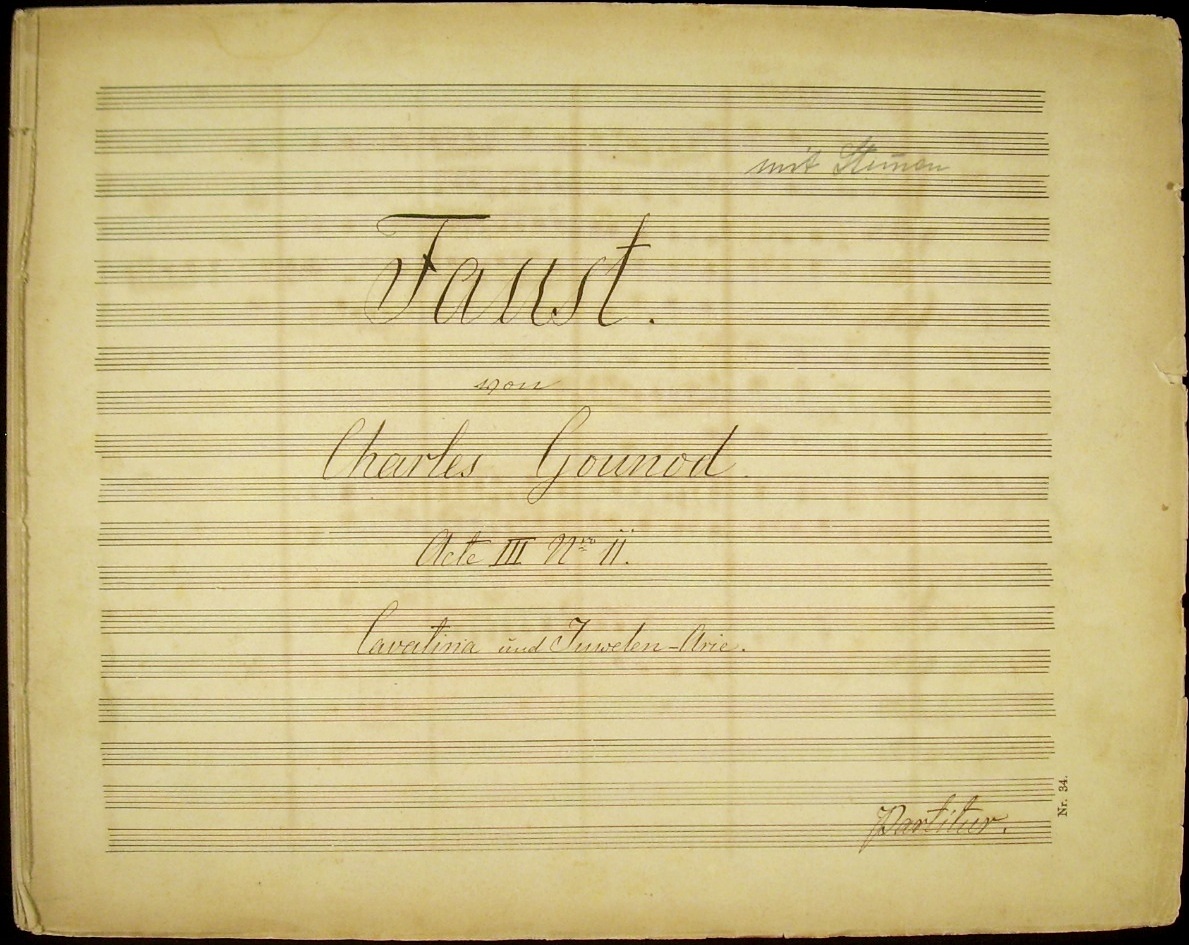 mit Stim̄en
Faust.
von
Charles Gounod.
Acte III Nro 11.
Cavatina und Juwelen-Arie.
Partitur.
Nr. 34.